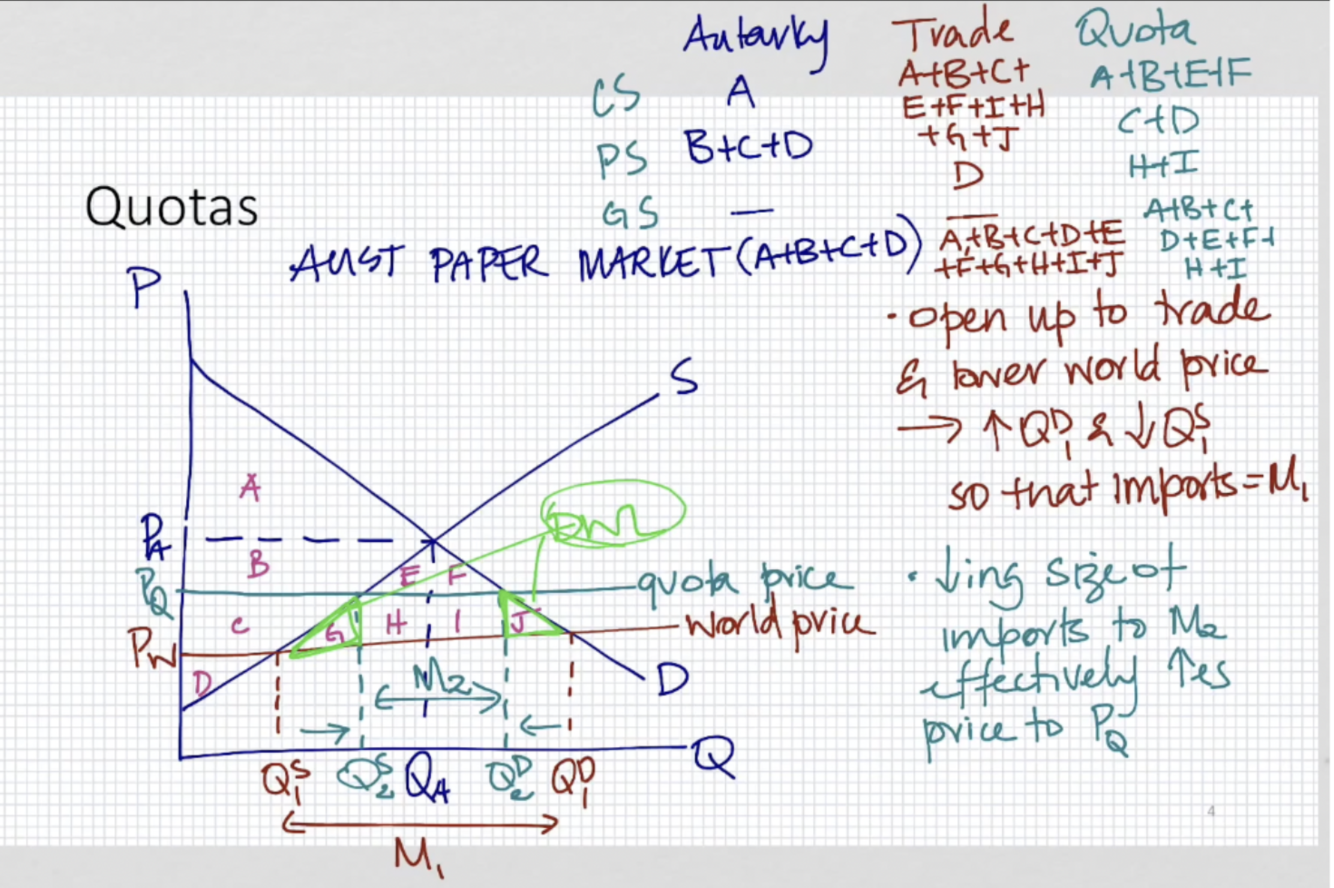 Autarky Trade Quota
CS A A+B+C+ A+B+E+F
E+F+I+H
+G+J
PS B+C+D D C+D
GS — — H+I
(A+B+C+D) A+B+C+D+E A+B+C+
+F+G+H+I+J D+E+F+
H+I
Quotas
AUST PAPER MARKET
P
S
A
PA
B
E F
PQ
quota price
C G H I J
PW
world price
D
M2
D
Q
Q1S Q2S QA Q2D Q1D
M1
DWL
• open up to trade
& lower world price
→ ↑ Q1D & ↓ Q1S
so that imports = M1
• ↓ing size of
imports to M2
effectively ↑es
price to PQ
4